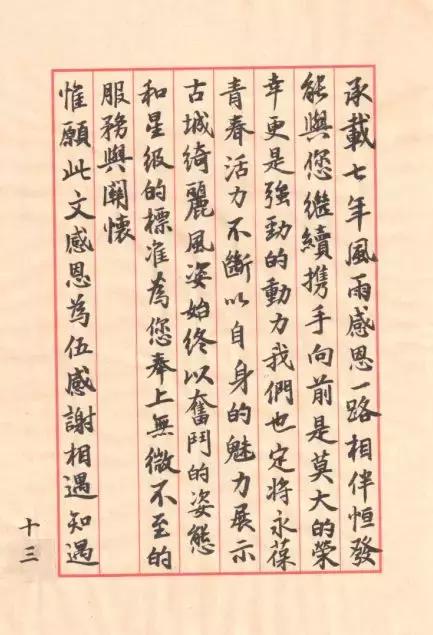 承載七年風雨感恩一路相伴恒發
能與您繼續携手向前是莫大的榮
幸更是強勁的動力我們也定將永葆
青春活力不斷以自身的魅力展示
古城綺麗風姿始終以奮鬥的姿態
和星級的標准為您奉上無微不至的
服務與關懷
惟願此文感恩為伍感謝相遇知遇
十三